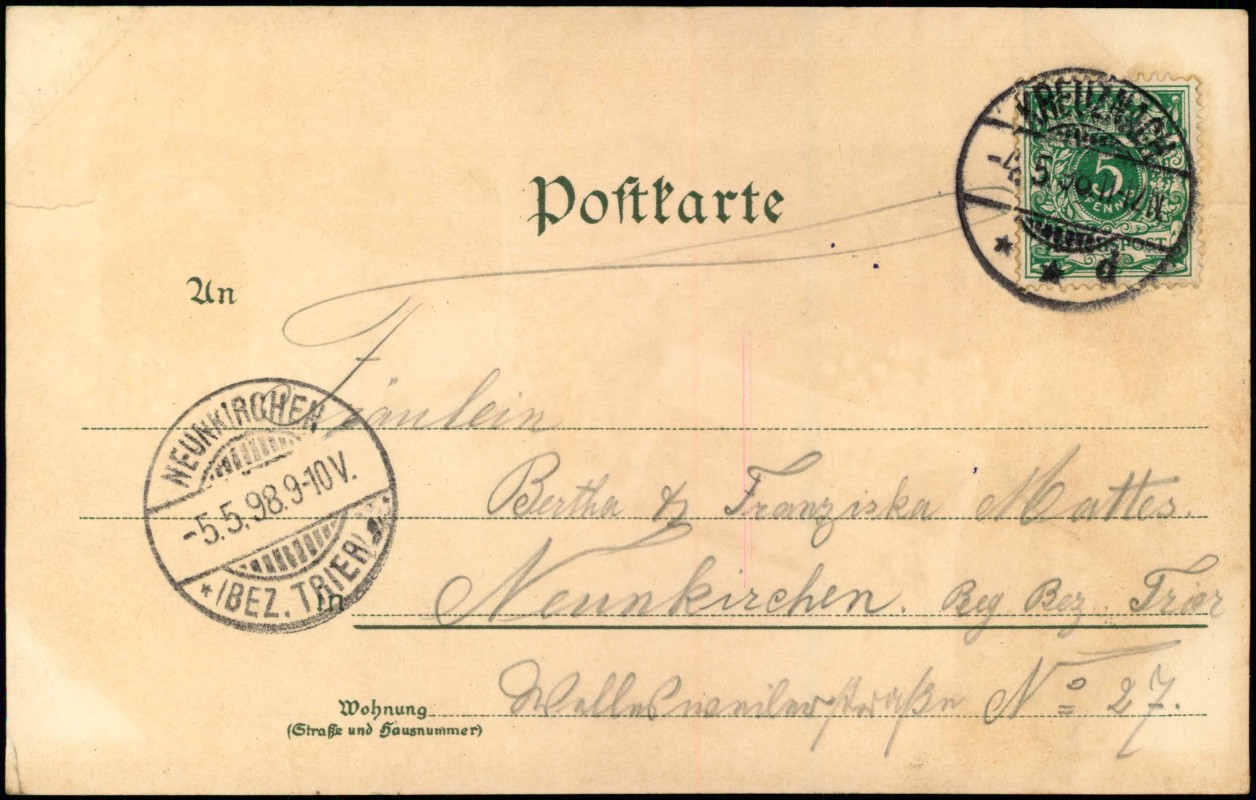 KREUZNACH
-4.5.98.11-12N.
* * d
5
PFENNIG
REICHSPOST
Postkarte
An
Fräulein
Bertha & Franziska Mattes.
Neunkirchen. Beg Bez. Trier
NEUNKIRCHEN
-5.5.98.9-10V.
* (BEZ. TRIER) a.
in
Wellesweilerstraße No 27.
Wohnung
(Straße und Hausnummer)